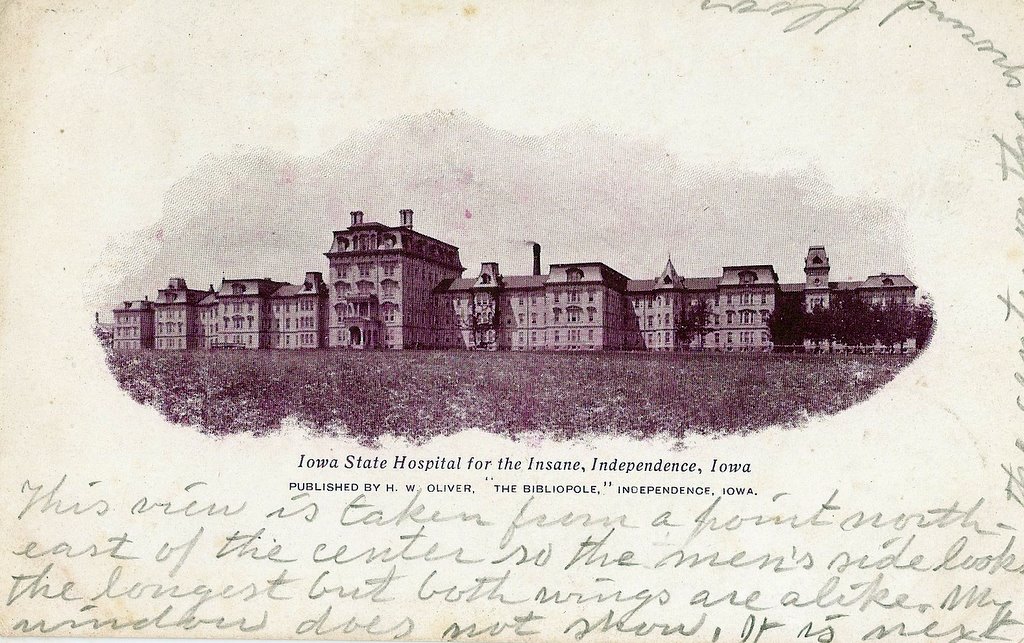 Iowa State Hospital for the Insane, Independence, Iowa
PUBLISHED BY H. W. OLIVER, "THE BIBLIOPOLE," INDEPENDENCE, IOWA.
This view is taken from a point north-
east of the center so the men's side looks
the longest but both wings are alike. My
window does not show, It is next
the center, on the
ground floor